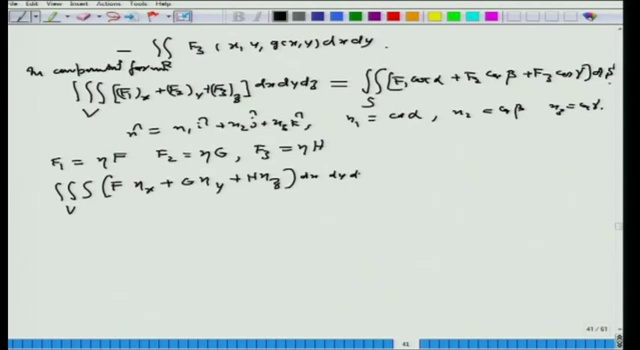 File Edit View Insert Actions Tools Help
− ∬_R F₃ (x, y, g(x,y)) dx dy.
In component form
∭_V [(F₁)ₓ + (F₂)_y + (F₃)_z] dx dy dz = ∬_S [F₁ cos α + F₂ cos β + F₃ cos γ] dS
n̂ = n₁ î + n₂ ĵ + n₃ k̂, n₁ = cos α, n₂ = cos β n₃ = cos γ.
F₁ = ηF F₂ = ηG, F₃ = ηH
∭_V (F ηₓ + G η_y + H η_z) dx dy d
41 / 61
41